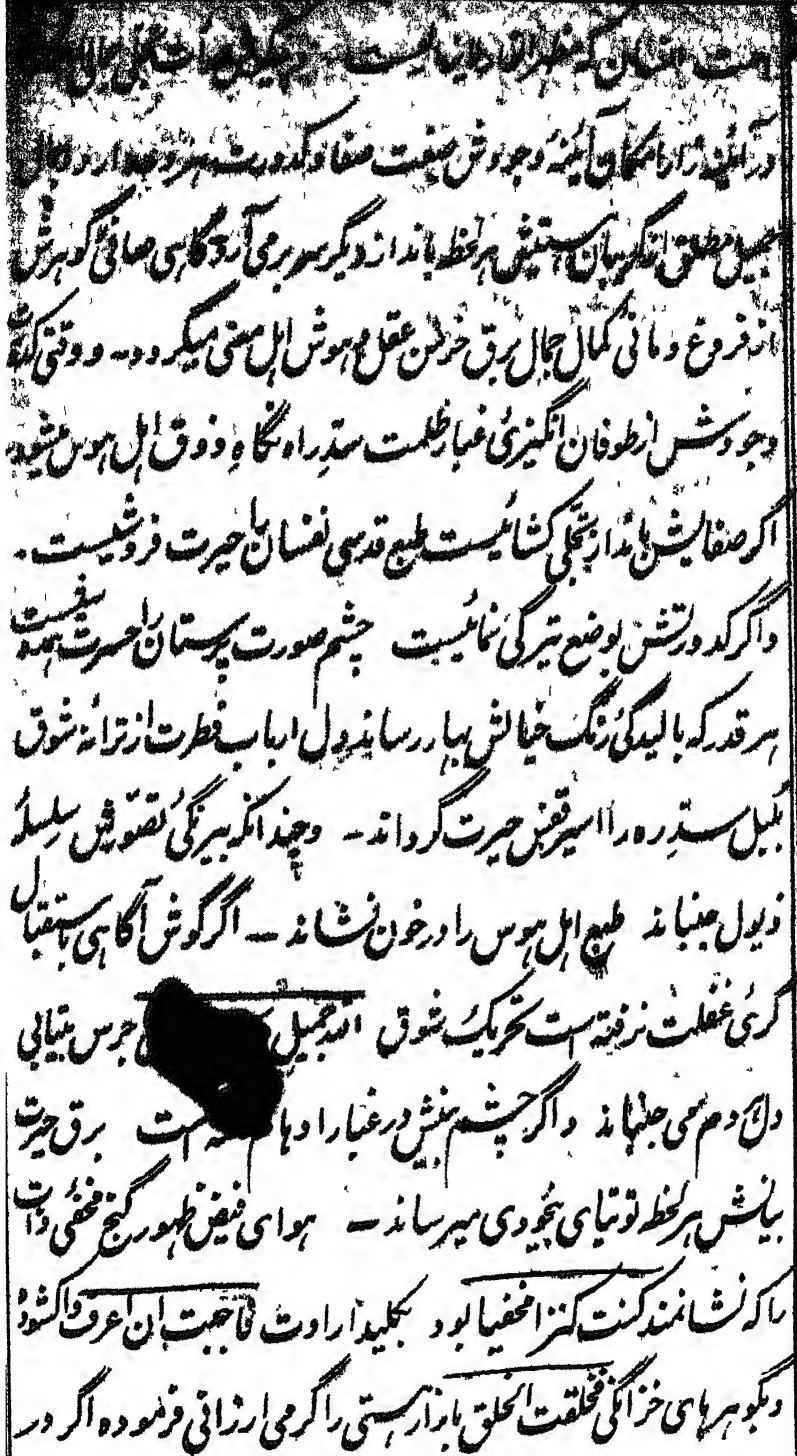 در آئینه زار امکان آئینهٔ وجودش صفت صفا و کدورت
مطلق از گریبان هستیش هر لحظه بانداز دیگر سر برمی آرد گاهی صافیٔ گوهرش
از فروغ ومانیٔ کمال جمال برق خرمن عقل و هوش اهل معنی میگردد - و وقتی کدورت
وجودش از طوفان انگیزیٔ غبار ظلمت سدِّ راه نگاهِ ذوق اهل هوس میشود
اگر صفایش بانداز تجلّی کشائیست طبع قدسی نفسان را حیرت فروشیست -
و اگر کدورتش بوضع تیرگی نمائیست چشم صورت پرستان را حسرت
هر قدر که بالیدگیٔ رنگ خیالش ببار رساند دل ارباب فطرت از ترانهٔ شوق
بلبل سدره را اسیر قفس حیرت گرداند - و چندانکه بیرنگیٔ تصوّرش سلسلهٔ
ذیول جنباند طبع اهل هوس را در خون نشاند - اگر گوش آگاهی باستقبال
کریٔ غفلت نرفته است تحریک شوق الله جمیل جرس بیتابی
دل دم می جنباند و اگر چشم بینش در غبار اوهام است برق حیرت
بیانش هر لحظه توتیای بیخودی میرساند - هوای فیض ظهور گنج مخفیٔ ذات
را که نشانمند کنت کنزا مخفیا بود بکلید ارادت فاحببت ان اعرف واکشوده
و بگوهرهای خزانگی فخلقت الخلق بازار هستی را گرمی ارزانی فرموده اگر در